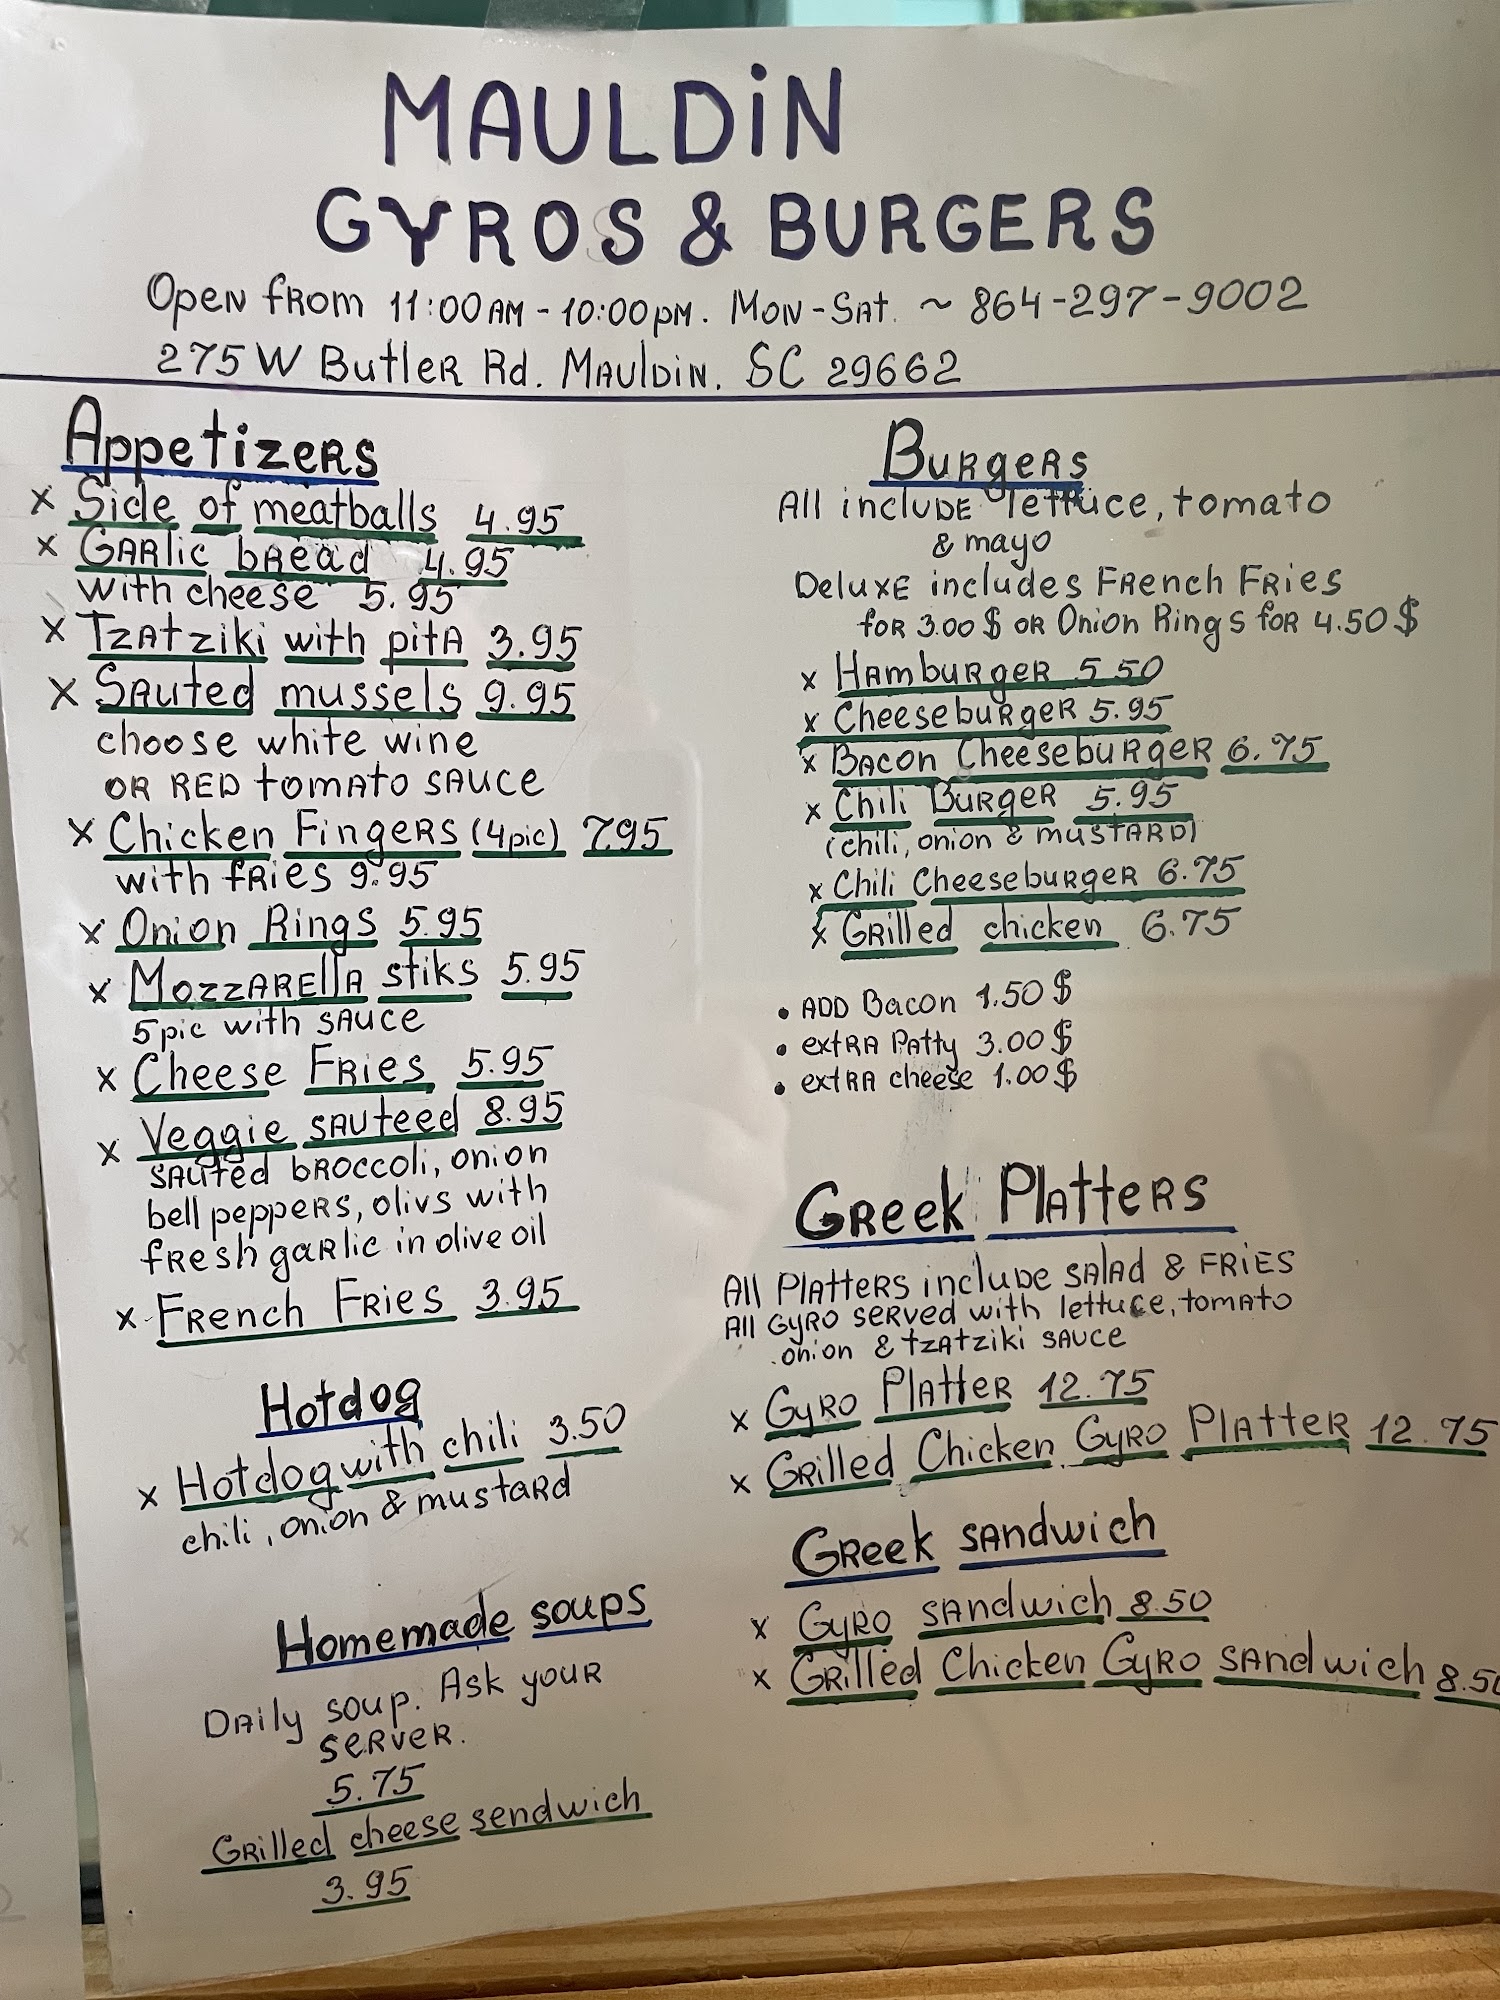 MAULDIN
GYROS & BURGERS
Open from 11:00 AM - 10:00 pm. Mon - Sat. ~ 864-297-9002
275 W Butler Rd. Mauldin. SC 29662
Appetizers
x Side of meatballs 4.95
x Garlic bread 4.95
with cheese 5.95
x Tzatziki with pita 3.95
x Sauted mussels 9.95
choose white wine
or red tomato sauce
x Chicken Fingers (4pic) 7.95
with fries 9.95
x Onion Rings 5.95
x Mozzarella stiks 5.95
5pic with sauce
x Cheese Fries 5.95
x Veggie sauteed 8.95
sauted broccoli, onion
bell peppers, olivs with
fresh garlic in olive oil
x French Fries 3.95
Hotdog
x Hotdog with chili 3.50
chili, onion & mustard
Homemade soups
Daily soup. Ask your
server.
5.75
Grilled cheese sendwich
3.95
Burgers
All include lettuce, tomato
& mayo
Deluxe includes French Fries
for 3.00 $ or Onion Rings for 4.50 $
x Hamburger 5.50
x Cheeseburger 5.95
x Bacon Cheeseburger 6.75
x Chili Burger 5.95
(chili, onion & mustard)
x Chili Cheeseburger 6.75
x Grilled chicken 6.75
• Add Bacon 1.50 $
• extra Patty 3.00 $
• extra cheese 1.00 $
Greek Platters
All Platters include salad & fries
All Gyro served with lettuce, tomato
onion & tzatziki sauce
x Gyro Platter 12.75
x Grilled Chicken Gyro Platter 12.75
Greek sandwich
x Gyro sandwich 8.50
x Grilled Chicken Gyro sandwich 8.50